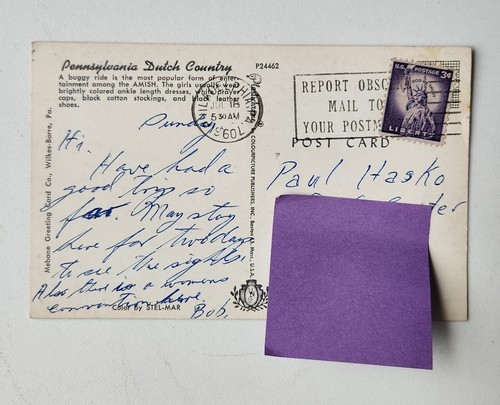 Pennsylvania Dutch Country
P24462
A buggy ride is the most popular form of enter-
tainment among the AMISH. The girls usually wear
brightly colored ankle length dresses, white prayer
caps, black cotton stockings, and black leather
shoes.
JUL 16
5 30 AM
REPORT OBSCENE
MAIL TO
YOUR POSTM
U.S. POSTAGE 3¢
LIBERTY
POST CARD
Mebane Greeting Card Co., Wilkes-Barre, Pa.
COLOURPICTURE PUBLISHERS, INC. Boston 15, Mass., U.S.A.
Sunday
Hi,
Have had a
good trip so
far. May stay
here for two days
to see the sights.
Also there is a womens
convention here.
Bob,
Paul Hasko
Color by STEL-MAR